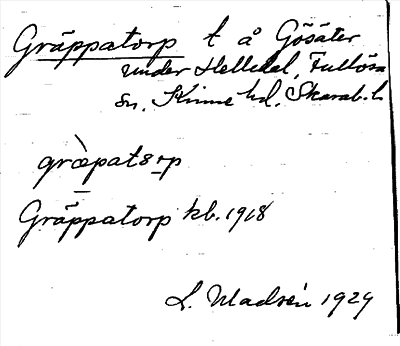 Gräppatorp t å Gösäter
under Helledal, Fullösa
sn, Kinne hd, Skarab. l.
græpatɜrp
Gräppatorp kb. 1918
L. Madsén 1929